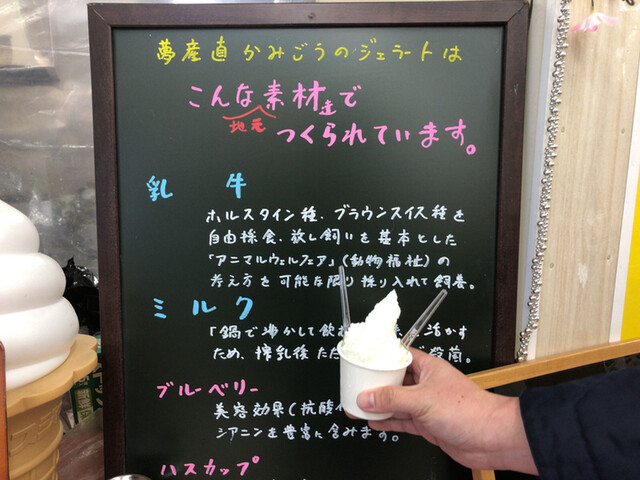 夢産直かみごうのジェラートは
こんな素材達で
地元
つくられています。
乳 牛
ホルスタイン種、ブラウンスイス種を
自由採食、放し飼いを基本とした
「アニマルウェルフェア」(動物福祉)の
考え方を可能な限り採り入れて飼養。
ミルク
「鍋で沸かして飲む 活かす
ため、搾乳後ただ 殺菌。
ブルーベリー
美容効果(抗酸
シアニンを豊富に含みます。
ハスカップ